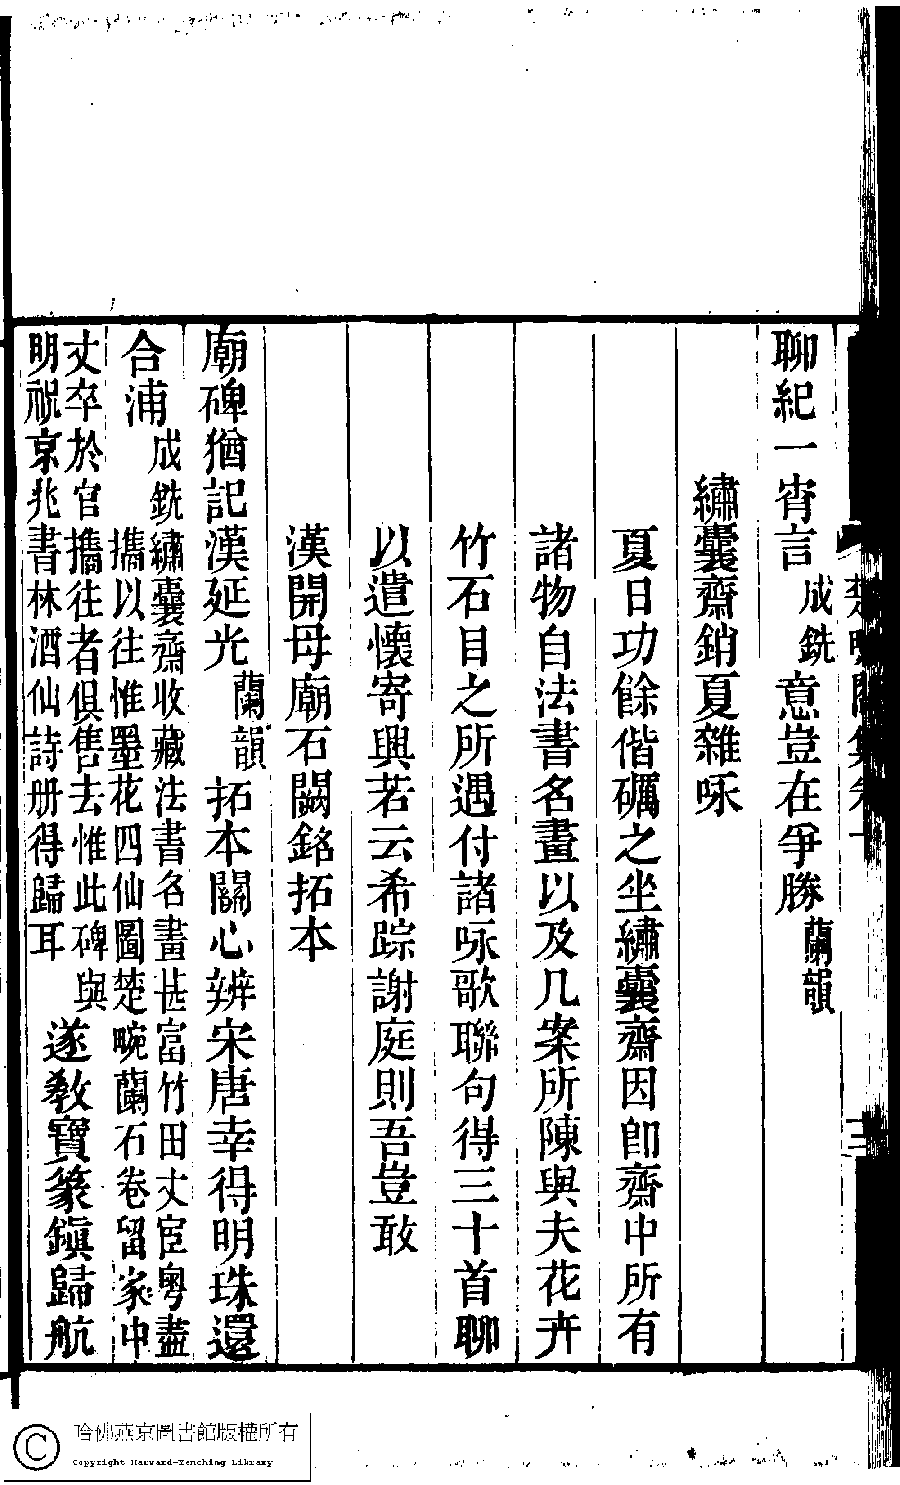 聊紀一宵言成銑意豈在爭勝蘭韻
繡囊齋銷夏雜咏
夏日功餘偕礪之坐繡囊齋因卽齋中所有
諸物自法書名畫以及几案所陳與夫花卉
竹石目之所遇付諸咏歌聯句得三十首聊
以遣懷寄興若云希踪謝庭則吾豈敢
漢開母廟石闕銘拓本
廟碑猶記漢延光蘭韻拓本關心辨宋唐幸得明珠還
合浦成銑繡囊齋收藏法書名畫甚富竹田丈宦粵盡
攜以往惟墨花四仙圖楚畹蘭石卷留家中
丈卒於官攜往者俱售去惟此碑與
明祝京兆書林酒仙詩册得歸耳
遂敎寶篆鎭歸航
哈佛燕京圖書館版權所有
Copyright Harvard-Yenching Library